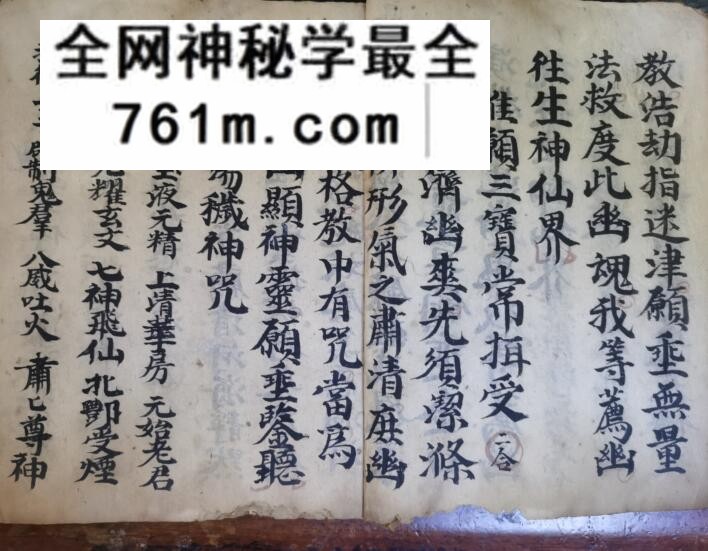 全网神秘学最全
761m.com
教浩劫指迷津願垂無量
法救度此幽魂我等薦幽
往生神仙界
惟願三寶常揖受 二合
濟幽爽先須潔滌
形氣之肅清庶幽
格教中有咒當爲
顯神靈願垂鑒聽
穢神咒
液元精 上清華房 元始老君
耀玄文 七神飛仙 北酆受煙
制鬼羣 八威吐火 肅匕尊神